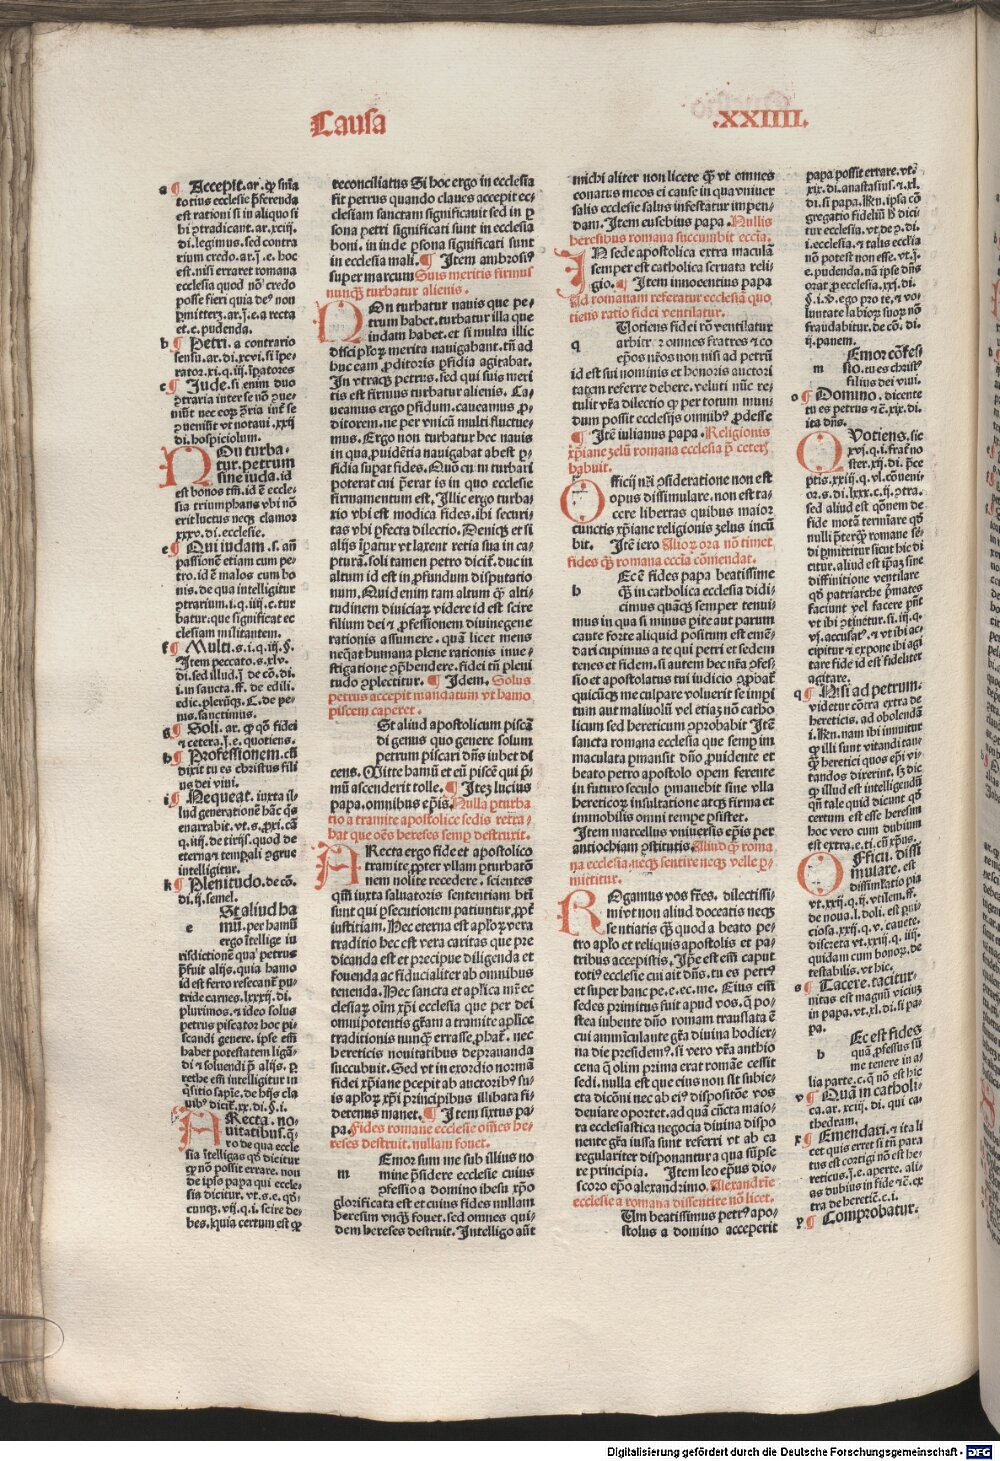 Causa
.XXIIII.
a ¶ Accepit. ar. ꝙ sn̄ia
totius ecclesie p̄ferenda
est rationi si in aliquo si
bi ꝯtradicant. ar. xciij.
di. legimus. sed contra
rium credo. ar. j. e. hoc
est. nisi erraret romana
ecclesia quod nō credo
posse fieri quia deꝰ non
ꝑmitteret. ar. j. e. a recta
et. c. pudenda.
b ¶ Petri. a contrario
sensu. ar. di. xcvi. si īpe-
rator. xi. q. iij. īpatores
c ¶ Jude. si enim duo
di. hospiciolum.
NOn turba-
tur. petrum
sine iuda. id
est bonos tm̄. id ē eccle-
sia triumphans vbi nō
erit luctus necꝫ clamor
xxxv. di. ecclesie.
e ¶ Qui iudam. s. añ
passionē etiam cum pe-
tro. id ē malos cum bo
nis. de qua intelligitur
ꝯtrarium. i. q. iiij. e. tur
batur. que significat ec
clesiam militantem.
f ¶ Multi. s. i. q. iij. §.
Item peccato. s. xlv.
di. sed illud. j̄ de cō. di.
i. in sancta. ff. de edili.
edic. plerūqꝫ. C. de pe-
nis. sanctimus.
g ¶ Soli. ar. ꝙ qō fidei
⁊ cetera. j. e. quotiens.
h ¶ Professionem. cū
dixit tu es christus fili
us dei viui.
i ¶ Nequeat. iuxta il-
lud generationē hāc ꝗs
enarrabit. vt. s. ꝓxi. cā
q. iiij. de tirijs. quod de
eterna ⁊ temꝑali ꝯgrue
intelligitur.
k ¶ Plenitudo. de cō.
di. ij. semel.
St aliud ha
e mū. per hamū
ergo ītellige iu
risdictionē qua petrus
p̄fuit alijs. quia hamo
id est ferro resecant pu-
tride carnes. lxxxij. di.
plurimos. ⁊ ideo solus
petrus piscator hoc pi-
scandi genere. ipse em̄
habet potestatem ligā-
di ⁊ soluendi p̄ alijs. ꝑ
rethe em̄ intelligitur in
ꝗsitio sapīe. de hijs cla
uibꝰ dicit. xx. di. §. i.
A Recta. no-
uitatibus. ꝗ-
ro de qua eccle
sia ītelligas qd̄ dicitur
ꝙ nō possit errare. non
de ipso papa qui eccle-
sia dicitur. vt. s. e. qō-
cunqꝫ. vij. q. i. scire de-
bes. sꝫ quia certum est ꝙ
reconciliatus Si hoc ergo in ecclesia
fit petrus quando claues accepit ec-
clesiam sanctam significauit sed in ꝑ
sona petri significati sunt in ecclesia
boni. in iude ꝑsona significati sunt
in ecclesia mali. ¶ Item ambrosiꝰ
super marcum Suis meritis firmus
nunqꝫ turbatur alienis.
NOn turbatur nauis que pe-
trum habet. turbatur illa que
iudam habet. et si multa illic
discipĺorꝫ merita nauigabant. tn̄ ad
huc eam ꝓditoris ꝑfidia agitabat.
In vtraqꝫ petrus. sed qui suis meri
tis est firmus turbatur alienis. Ca-
ueamus ergo ꝑfidum. caueamus ꝓ-
ditorem. ne per vnicū multi fluctue-
mus. Ergo non turbatur hec nauis
in qua ꝓuidētia nauigabat abest ꝑ-
fidia supat fides. Quō eū m turbari
poterat cui p̄erat is in quo ecclesie
firmamentum est. Illic ergo turba-
tio vbi est modica fides. ibi securi-
tas vbi ꝑfecta dilectio. Deniqꝫ et si
alijs īpatur vt laxent retia sua in ca-
pturā. soli tamen petro dicit̄. duc in
altum id est in ꝓfundum disputatio
num. Quid enim tam altum ꝙ alti-
tudinem diuiciarꝫ videre id est scire
filium dei ⁊ ꝓfessionem diuinegene
rationis assumere. quā licet mens
neqat humana plene rationis inue-
stigatione ꝯp̄hendere. fidei tn̄ pleni
tudo ꝯplectitur. ¶ Idem. Solus
petrus accepit mandatum vt hamo
piscem caperet.
St aliud apostolicum piscā
di genus quo genere solum
petrum piscari dn̄s iubet di
cens. Mitte hamū et eū piscē qui p̄i
mū ascenderit tolle. ¶ Itez lucius
papa. omnibus ep̄is. Nulla ꝑturba
tio a tramite apostolice sedis retra-
hat que oēs hereses semꝑ destruxit.
ARecta ergo fide et apostolico
tramite ꝓpter vllam ꝑturbatō
nem nolite recedere. scientes
qm̄ iuxta saluatoris sententiam bti
sunt qui ꝑsecutionem patiuntur ꝓpt̄
iusticiam. Nec eterna est apĺorꝫ vera
traditio hec est vera caritas que pre
dicanda est et precipue diligenda et
fouenda ac fiducialiter ab omnibus
tenenda. Hec sancta et apĺica mr̄ ec
clesiarꝫ oīm xp̄i ecclesia que per dei
omnipotentis gr̄am a tramite apĺice
traditionis nunqꝫ errasse ꝓbat̄. nec
hereticis nouitatibus deprauanda
succubuit. Sed vt in exordio normā
fidei xp̄iane ꝑcepit ab auctoribꝰ su-
is apĺorꝫ xp̄i principibus illibata fi-
detenus manet. ¶ Item sixtus pa-
pa. Fides romane ecclesie om̄es he-
reses destruit. nullam fouet.
Emor sum me sub illius no
m mine p̄sidere ecclesie cuius
ꝯfessio a domino ihesu xp̄o
glorificata est et cuius fides nullam
heresim vnqꝫ fouet. sed omnes qui-
dem hereses destruit. Intelligo aūt
michi aliter non licere ꝙ vt omnes
conatus meos ei cause in qua vniuer
salis ecclesie salus infestatur impen-
dam. Item eusebius papa. Nullis
heresibus romana succumbit ecc̄ia.
IN sede apostolica extra maculā
semper est catholica seruata reli-
gio. ¶ Item innocentius papa
Ad romanam referatur ecclesiā quo
tiens ratio fidei ventilatur.
Uotiens fidei rō ventilatur
q arbitr̄ ⁊ omnes fratres ⁊ co
ep̄os nr̄os non nisi ad petrū
id est sui nominis et honoris auctori
tatem referre debere. veluti nūc re-
tulit vr̄a dilectio ꝙ per totum mun-
dum possit ecclesijs omnibꝰ ꝓdesse
¶ Itē iulianus papa. Religionis
xp̄iane zelū romana ecclesia p̄ ceteris
habuit.
OFficij nr̄i ꝯsideratione non est
opus dissimulare. non est ta-
cere libertas quibus maior
cunctis xp̄iane religionis zelus incū
bit. Itē iero Alior ora nō timet
fides qꝫ romana ecc̄ia cōmendat.
Ec ē fides papa beatissime
b ꝙ in catholica ecclesia didi-
cimus quāqꝫ semper tenui-
mus in qua si minus pite aut parum
caute forte aliquid positum est emē-
dari cupimus a te qui petri et sedem
tenes et fidem. si autem hec nr̄a ꝯfes-
sio et apostolatus tui iudicio ꝓbat̄
quicūqꝫ me culpare voluerit se impi
tum aut maliuolū vel etiaꝫ nō catho
licum sed hereticum ꝯprobabit Itē
sancta romana ecclesia que semꝑ im
maculata ꝑmansit dn̄o ꝓuidente et
beato petro apostolo opem ferente
in futuro seculo ꝑmanebit sine vlla
hereticorꝫ insultatione atqꝫ firma et
immobilis omni tempe ꝑsistet.
Item marcellus vniuersis ep̄is per
antiochiam ꝯstitutis. Aliud ꝙ roma
na ecclesia. necqꝫ sentire necqꝫ velle ꝑ-
mittitur.
ROgamus vos fr̄es. dilectissi-
mi vt non aliud doceatis necqꝫ
sentiatis qꝫ quod a beato pe-
tro apĺo et reliquis apostolis et pa-
tribus accepistis. Ip̄e est em̄ caput
totiꝰ ecclesie cui ait dn̄s. tu es petrꝰ
et super hanc pe. e. ec. me. Eius em̄
sedes primitus fuit apud vos. ꝙ po-
stea iubente dn̄o romam translata ē
cui ammīculante gr̄a diuina hodier-
na die presidemꝰ. si vero vr̄a anthio
cena ꝙ olim prima erat romāe cessit
sedi. nulla est que eius non sit subie-
cta dicōni nec ab eiꝰ dispositōe vos
deuiare oportet. ad quā cūcta maio-
ra ecclesiastica negocia diuina dispo
nente gr̄a iussa sunt referri vt ab ea
regulariter disponantur a qua sūpse
re principia. Item leo ep̄us dio-
scoro ep̄o alexandrino. Alexandrie
ecclesie a romana dissentire nō licet.
Um beatissimus petrꝰ apo-
stolus a domino acceperit
papa possit errare. vt.
xix. di. anastasius. ⁊. xl.
di. si papa. Rn̄. ipsa cō
gregatio fideliū h̄ dici
tur ecclesia. vt. de ꝯ. di.
i. ecclesia. ⁊ talis ecclīa
nō potest non esse. vt. j̄.
e. pudenda. nā ipse dn̄s
orat ꝓ ecclesia. xxj. di.
§. i. v. ego pro te. ⁊ vo-
luntate labiorꝫ suorꝫ nō
fraudabitur. de cō. di.
ij. panem.
Emor cōfes-
m sio. tu es christꝰ
filius dei viui.
o ¶ Domino. dicente
tu es petrus ⁊c. xix. di.
ita dn̄s.
QUotiens. sic
xvj. q. i. frat̄ no
ster. xij. di. p̄ce
ptis. xxiij. q. vl. cōueni-
or. s. di. lxxx. c. ij. ꝯtra.
sed aliud est qōnem de
fide motā termiare qd̄
nulli p̄terqꝫ romane se-
di ꝑmittitur sicut hic di
citur. aliud est ip̄aꝫ sine
diffinitione ventilare
qd̄ patriarche p̄mates
faciunt vel facere pn̄t
vt ibi ꝯtinetur. si. iij. q.
vj. accusatꝰ. ⁊ vt ibi ac-
cipitur ⁊ expone ibi agi
tare fide id est fideliter
agitare.
q ¶ Nisi ad petrum.
videtur cōtra extra de
hereticis. ad abolendā
i. Rn̄. nam ibi innuitur
ꝙ illi sunt vitandi tan-
ꝙ heretici quos ep̄i vi-
tandos dixerint. sꝫ dic
ꝙ illud est intelligendū
qn̄ tale quid dicunt qd̄
certum est esse heresim
hoc vero cum dubium
est extra. e. ti. cū xp̄us.
OFficij. dissi
mulare. est
dissimĺatio pia
vt. xxij. q. ij. vtilem. ff.
de noua. l. doli. est ꝑni-
ciosa. xxij. q. v. cauete.
discreta vt. xxij. q. iiij.
quidam cum honorꝫ. de
testabilis. vt hic.
s ¶ Tacere. tacitur-
nitas est magnū viciuꝫ
in papa. vt. xl. di. si pa-
pa.
Ec est fides
b quā ꝓfessus sū
me tenere in a-
lia parte. c. ꝙ nō est hic
v ¶ Quā in catholi-
ca. ar. xcij. di. qui ca-
thedram.
x ¶ Emendari. ⁊ ita li
cet quis erret si tn̄ para
tus est corrigi nō est he-
reticus. j. e. aperte. ali-
as dubius in fide ⁊c. ex
tra de hereticē. c. i.
y ¶ Comprobatur.
Digitalisierung gefördert durch die Deutsche Forschungsgemeinschaft - DFG